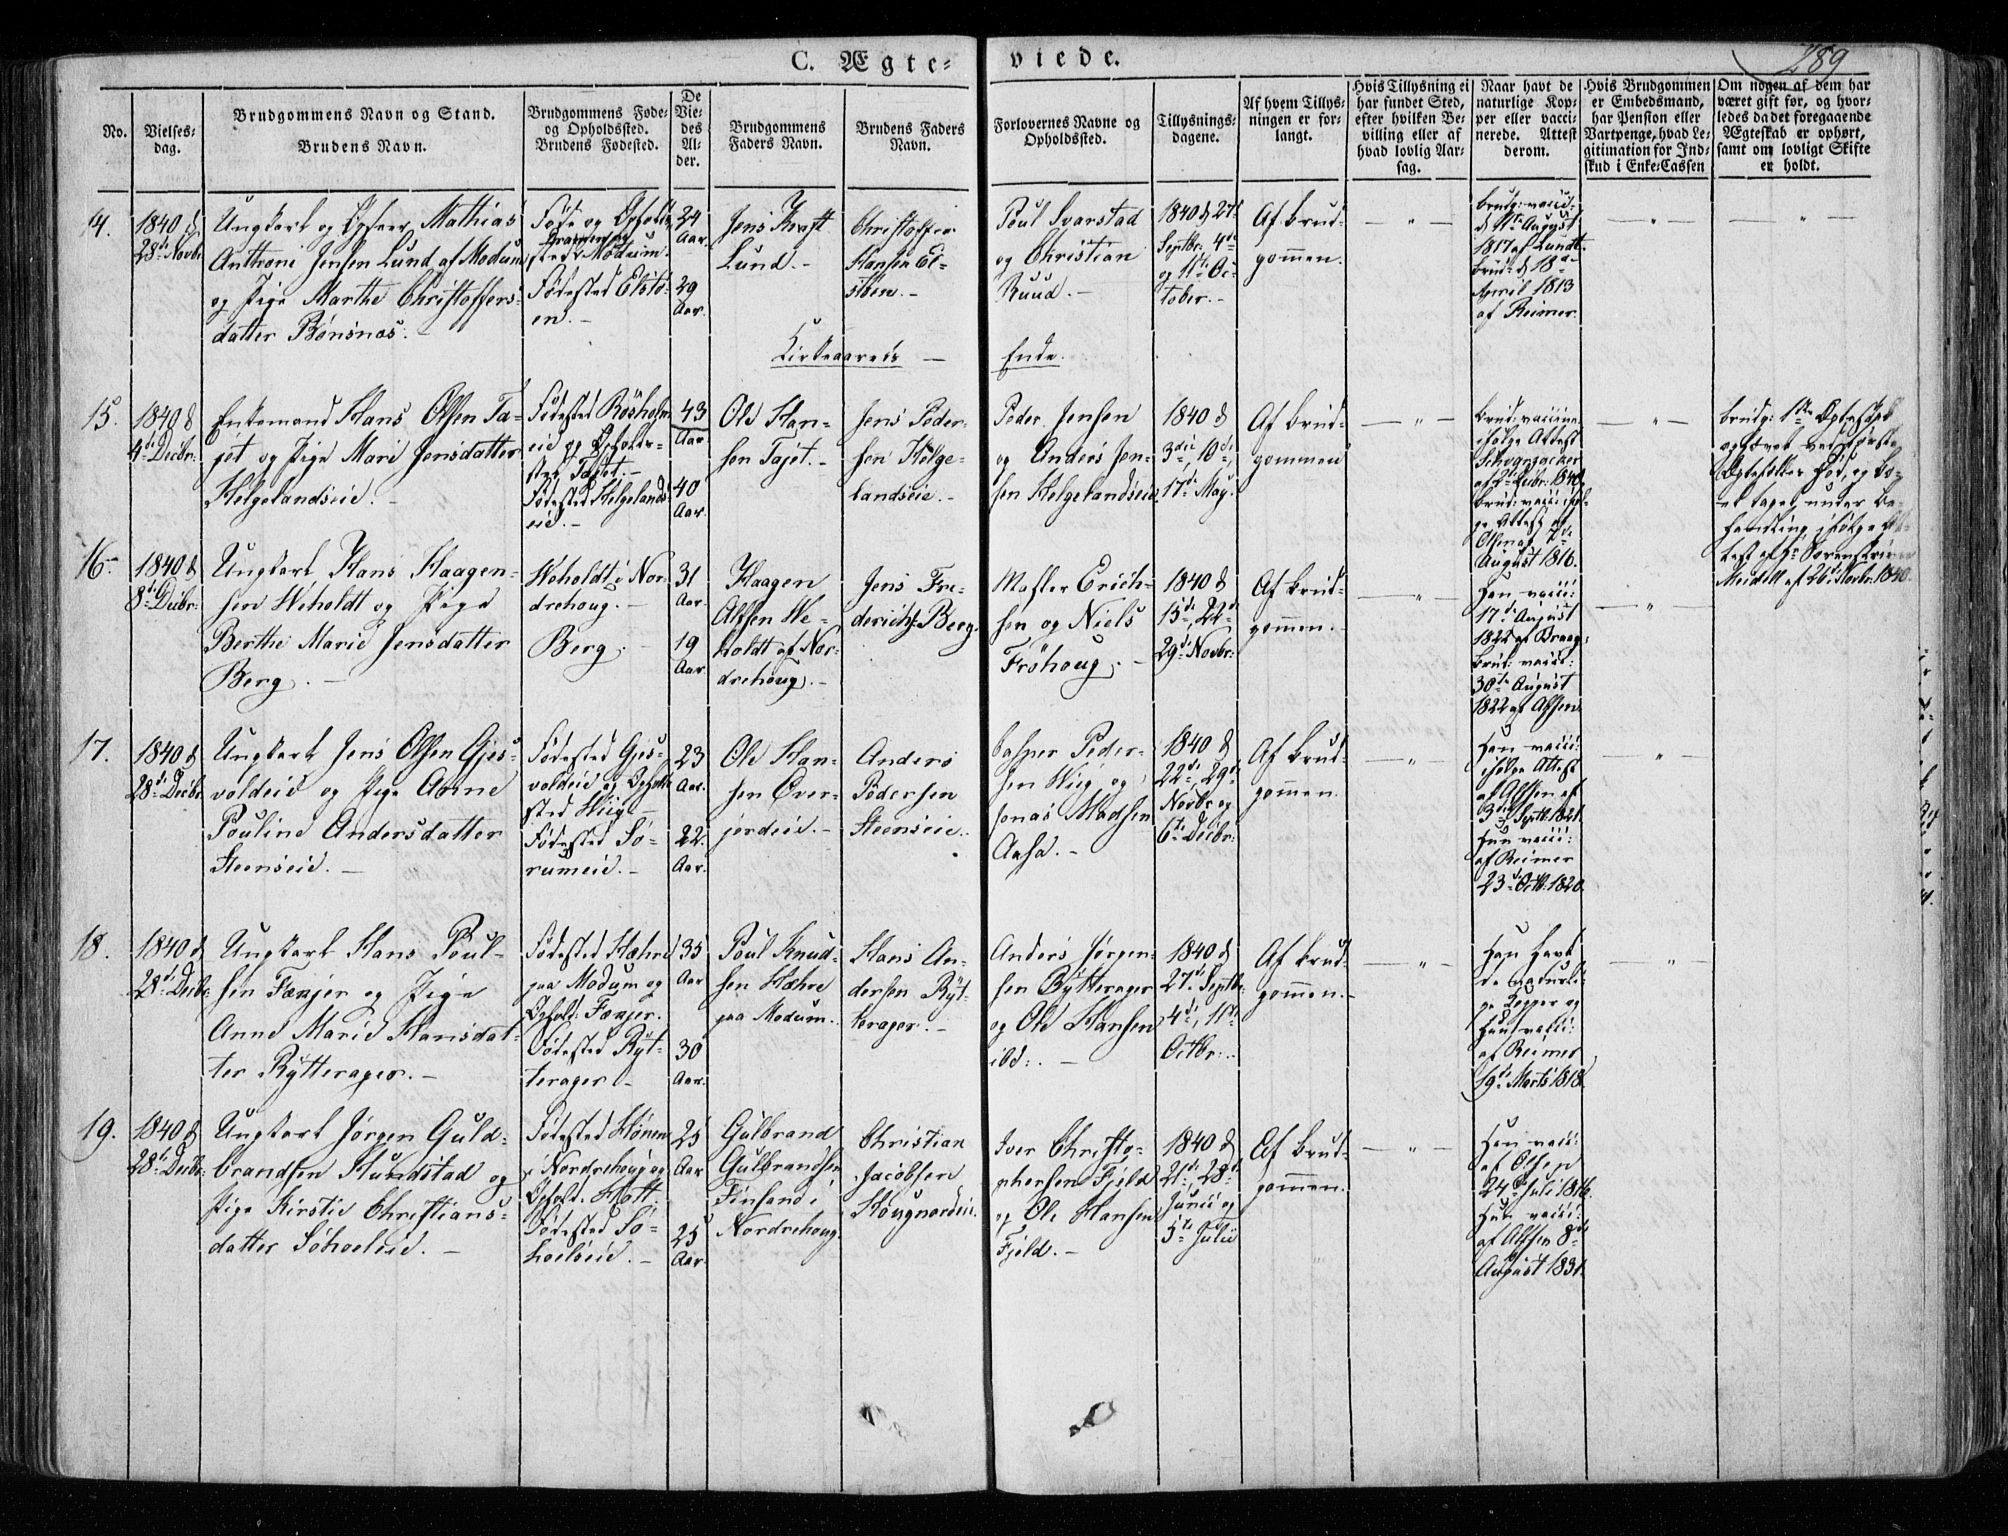 C. Ægte- viede.
289
No.
Vielses-
dag.
Brudgommens Navn og Stand.
Brudens Navn.
Brudgommens Føde-
og Opholdssted.
Brudens Fødested.
De
Vie-
des
Al-
der.
Brudgommens
Faders Navn.
Brudens Faders
Navn.
Forlovernes Navne og
Opholdssted.
Tillysnings-
dagene.
Af hvem Tillys-
ningen er for-
langt.
Hvis Tillysning ei
har fundet Sted,
efter hvilken Be-
villing eller af
hvad lovlig Aar-
sag.
Naar havt de
naturlige Kop-
per eller vacci-
nerede. Attest
derom.
Hvis Brudgommen
er Embedsmand,
har Pension eller
Vartpenge, hvad Le-
gitimation for Ind-
skud i Enke-Cassen
Om nogen af dem har
været gift før, og hvor-
ledes da det foregaaende
Ægteskab er ophørt,
samt om lovligt Skifte
er holdt.
14.
1840 d
28de Novbr
Ungkarl og Mathias
Anthoni Jensen Lund af Modum
og Pige Marthe Christoffers-
datter Bönsnæs. -
Føde og Ophold-
Drammen og
sted Modum.
Födested Elstö-
en. -
24
Aar.
29
Aar.
Jens Kraft
Lund. -
Christoffer
Hansen El-
stöen. -
Poul Svarstad
og Christian
Ruud. -
1840 d 27de
Septbr. 4de
og 11te Oc-
tober. -
Af Brud-
gommen.
— " —
Brudg: vacci-
d 11te August
1817 af Lundt.
Brud: d 18de
April 1813
af Reimer.
— " —
— " —
Kirkeaarets — Ende.
15.
1840 d
4de Decbr:
Enkemand Hans Olsen Ta-
jet og Pige Mari Jensdatter
Helgelandseie. -
Födested Rösholm
eie og Opholds-
sted Tajet. -
Födested Helgelands-
eie. -
43
Aar
40
Aar.
Ole Han-
sen Tajet. -
Jens Peder-
sen Helge-
landseie. -
Peder Jensen
og Anders Jen-
sen Helgelandseie
1840 d
3die, 10de,
17de May.
Af Brud-
gommen
— " —
ifølge Attest
af 2de Decbr: 1840.
Brud: vacci: iføl-
ge Attest af
Olsen af 7de
August 1816.
— " —
Brudg: 1ste Ægteskab
ophævet ved første
Ægtefælles Død, og Bo-
et taget under Be-
handling ifølge At-
test af Hr Sorenskriver
Meidell af 26de Novbr. 1840.
16.
1840 d
8de Decbr:
Ungkarl Hans Haagen-
sen Weholdt og Pige
Berthe Marie Jensdatter
Berg. -
Weholdt i Nor-
drehoug. -
Berg. -
31
Aar.
19
Aar.
Haagen
Alfsen We-
holdt af Nor-
drehoug. -
Jens Fre-
derichs: Berg.
Erich-
sen og Niels
Fröhoug. -
1840 d
15de, 22de
29de Novbr:
Af Brud-
gommen. -
— " —
Han vacci:
17de August
1822 af Braag:
Brud: vacci:
30te August
1822 af Alfsen.
— " —
17.
1840 d
28de Decbr
Ungkarl Jens Olsen Gjes-
voldeie og Pige Anne
Pouline Andersdatter
Steenseie. -
Födested Gjes-
voldeie og Ophold-
sted Wiig -
Födested Sö-
rumeie. -
23
Aar.
22.
Aar.
Ole Han-
sen Över-
jordeie. -
Anders
Pedersen
Steenseie. -
Casper Peder-
sen Wiig og
Jonas Madsen
Aasa. -
1840 d
22de, 29de
Novbr og
6te Decbr:
Af Brud-
gommen.
— " —
Han vacci:
ifølge Attest
af Alfsen af
3die Septbr. 1821.
Hun vacci:
af Reimer
23de Octb: 1820.
— " —
18.
1840 d
28de Decbr.
Ungkarl Hans Poul-
sen Fænjer og Pige
Anne Marie Hansdat-
ter Rytterager. -
Födested Hæhre
paa Modum og
Ophold: Fænjer.
Födested Ryt-
terager -
35
Aar
30
Aar.
Poul Knud-
sen Hæhre
paa Modum. -
Hans An-
dersen Ryt-
terager. -
Anders Jörgen-
sen Rytterager
og Ole Hansen
ibd: -
1840 d
27de Septbr.
4de, 11te
Octbr: -
Af Brud-
gommen. -
— " —
Han havt
de naturli-
ge Kopper og
Hun vacci:
af Reimer
19de Marts 1818.
— " —
19.
1840 d
28de Decbr:
Ungkarl Jörgen Guld-
brandsen Hundstad og
Pige Kirstie Christians-
datter Söhoeleie. -
Födested Hönen
i Nordrehoug og
Ophold:
Födested Sö-
hoelseie. -
25
Aar
25
Aar.
Gulbrand
Gulbrandsen
i
Nordrehoug.
Christian
Jacobsen
Hougnordeie.
Iver Christo-
phersen Fjeld
og Ole Hansen
Fjeld. -
1840 d
21de, 28de
Junii og
5te Julii
Af Brud-
gommen.
— " —
Han vacci:
af Olsen
24de Juli 1816.
Hun vacci:
af Alfsen 8de
August 1831.